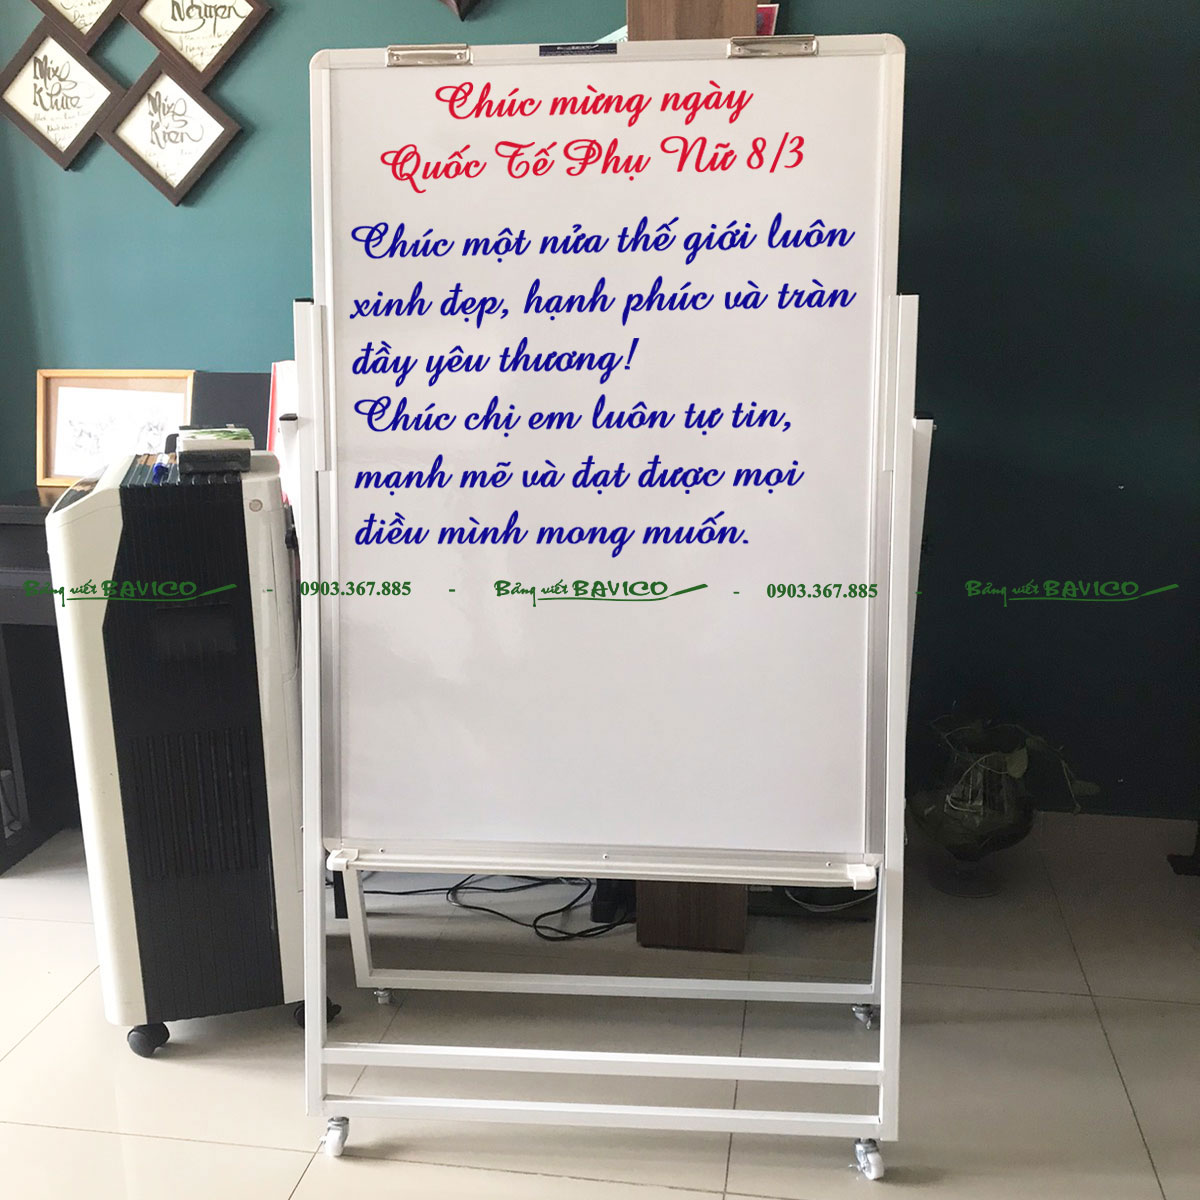 Nguyen
Mix
Khue
Mix
Kien
Bảng BAVICO
Chúc mừng ngày
Quốc Tế Phụ Nữ 8/3
Chúc một nửa thế giới luôn
xinh đẹp, hạnh phúc và tràn
đầy yêu thương!
Chúc chị em luôn tự tin,
mạnh mẽ và đạt được mọi
điều mình mong muốn.
Bảng viết BAVICO - 0903.367.885 - Bảng viết BAVICO - 0903.367.885 - Bảng viết BAVICO